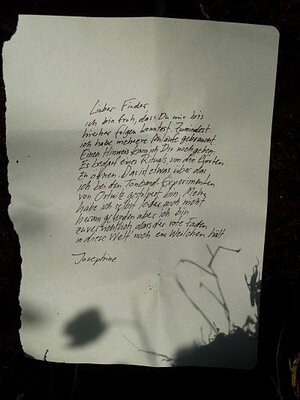 Lieber Finder
ich bin froh, dass Du mir bis
hierher folgen konntest. Zumindest
ich habe mehrere Anläufe gebraucht.
Einen Hinweis kann ich Dir noch geben
Es bedarf eines Rituals, um die Pforten
zu öffnen. Das ist etwas über das
ich bei den Tonband Experimenten
von Ortwig gestolpert bin. Mehr
habe ich selbst leider noch nicht
heraus gefunden aber ich bin
zuversichtlich, dass der rote Faden
in diese Welt noch ein Weilchen hält
Josephine